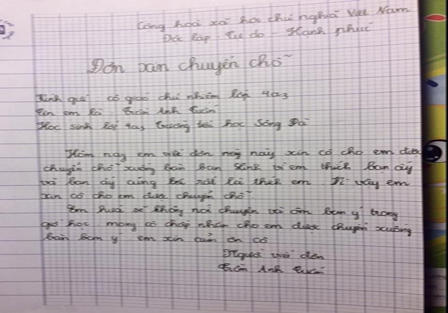 Cộng hoà xã hội chủ nghĩa Việt Nam
Độc lập - Tự do - Hạnh phúc
Đơn xin chuyển chỗ
Kính gửi cô giáo chủ nhiệm lớp 4a3
Tên em là Trần Anh Tuấn
Học sinh lớp 4a3 trường tiểu học Sông Đà
Hôm nay em viết đơn này xin cô cho em được
chuyển chỗ xuống bàn bạn Linh vì em thích bạn ấy
và bạn ấy cũng rất là thích em Vì vậy em
xin cô cho em được chuyển chỗ
Em hứa sẽ không nói chuyện và ôm bạn ý trong
giờ học mong cô chấp nhận cho em được chuyển xuống
bàn bạn ý em xin cảm ơn cô
Người viết đơn
Trần Anh Tuấn